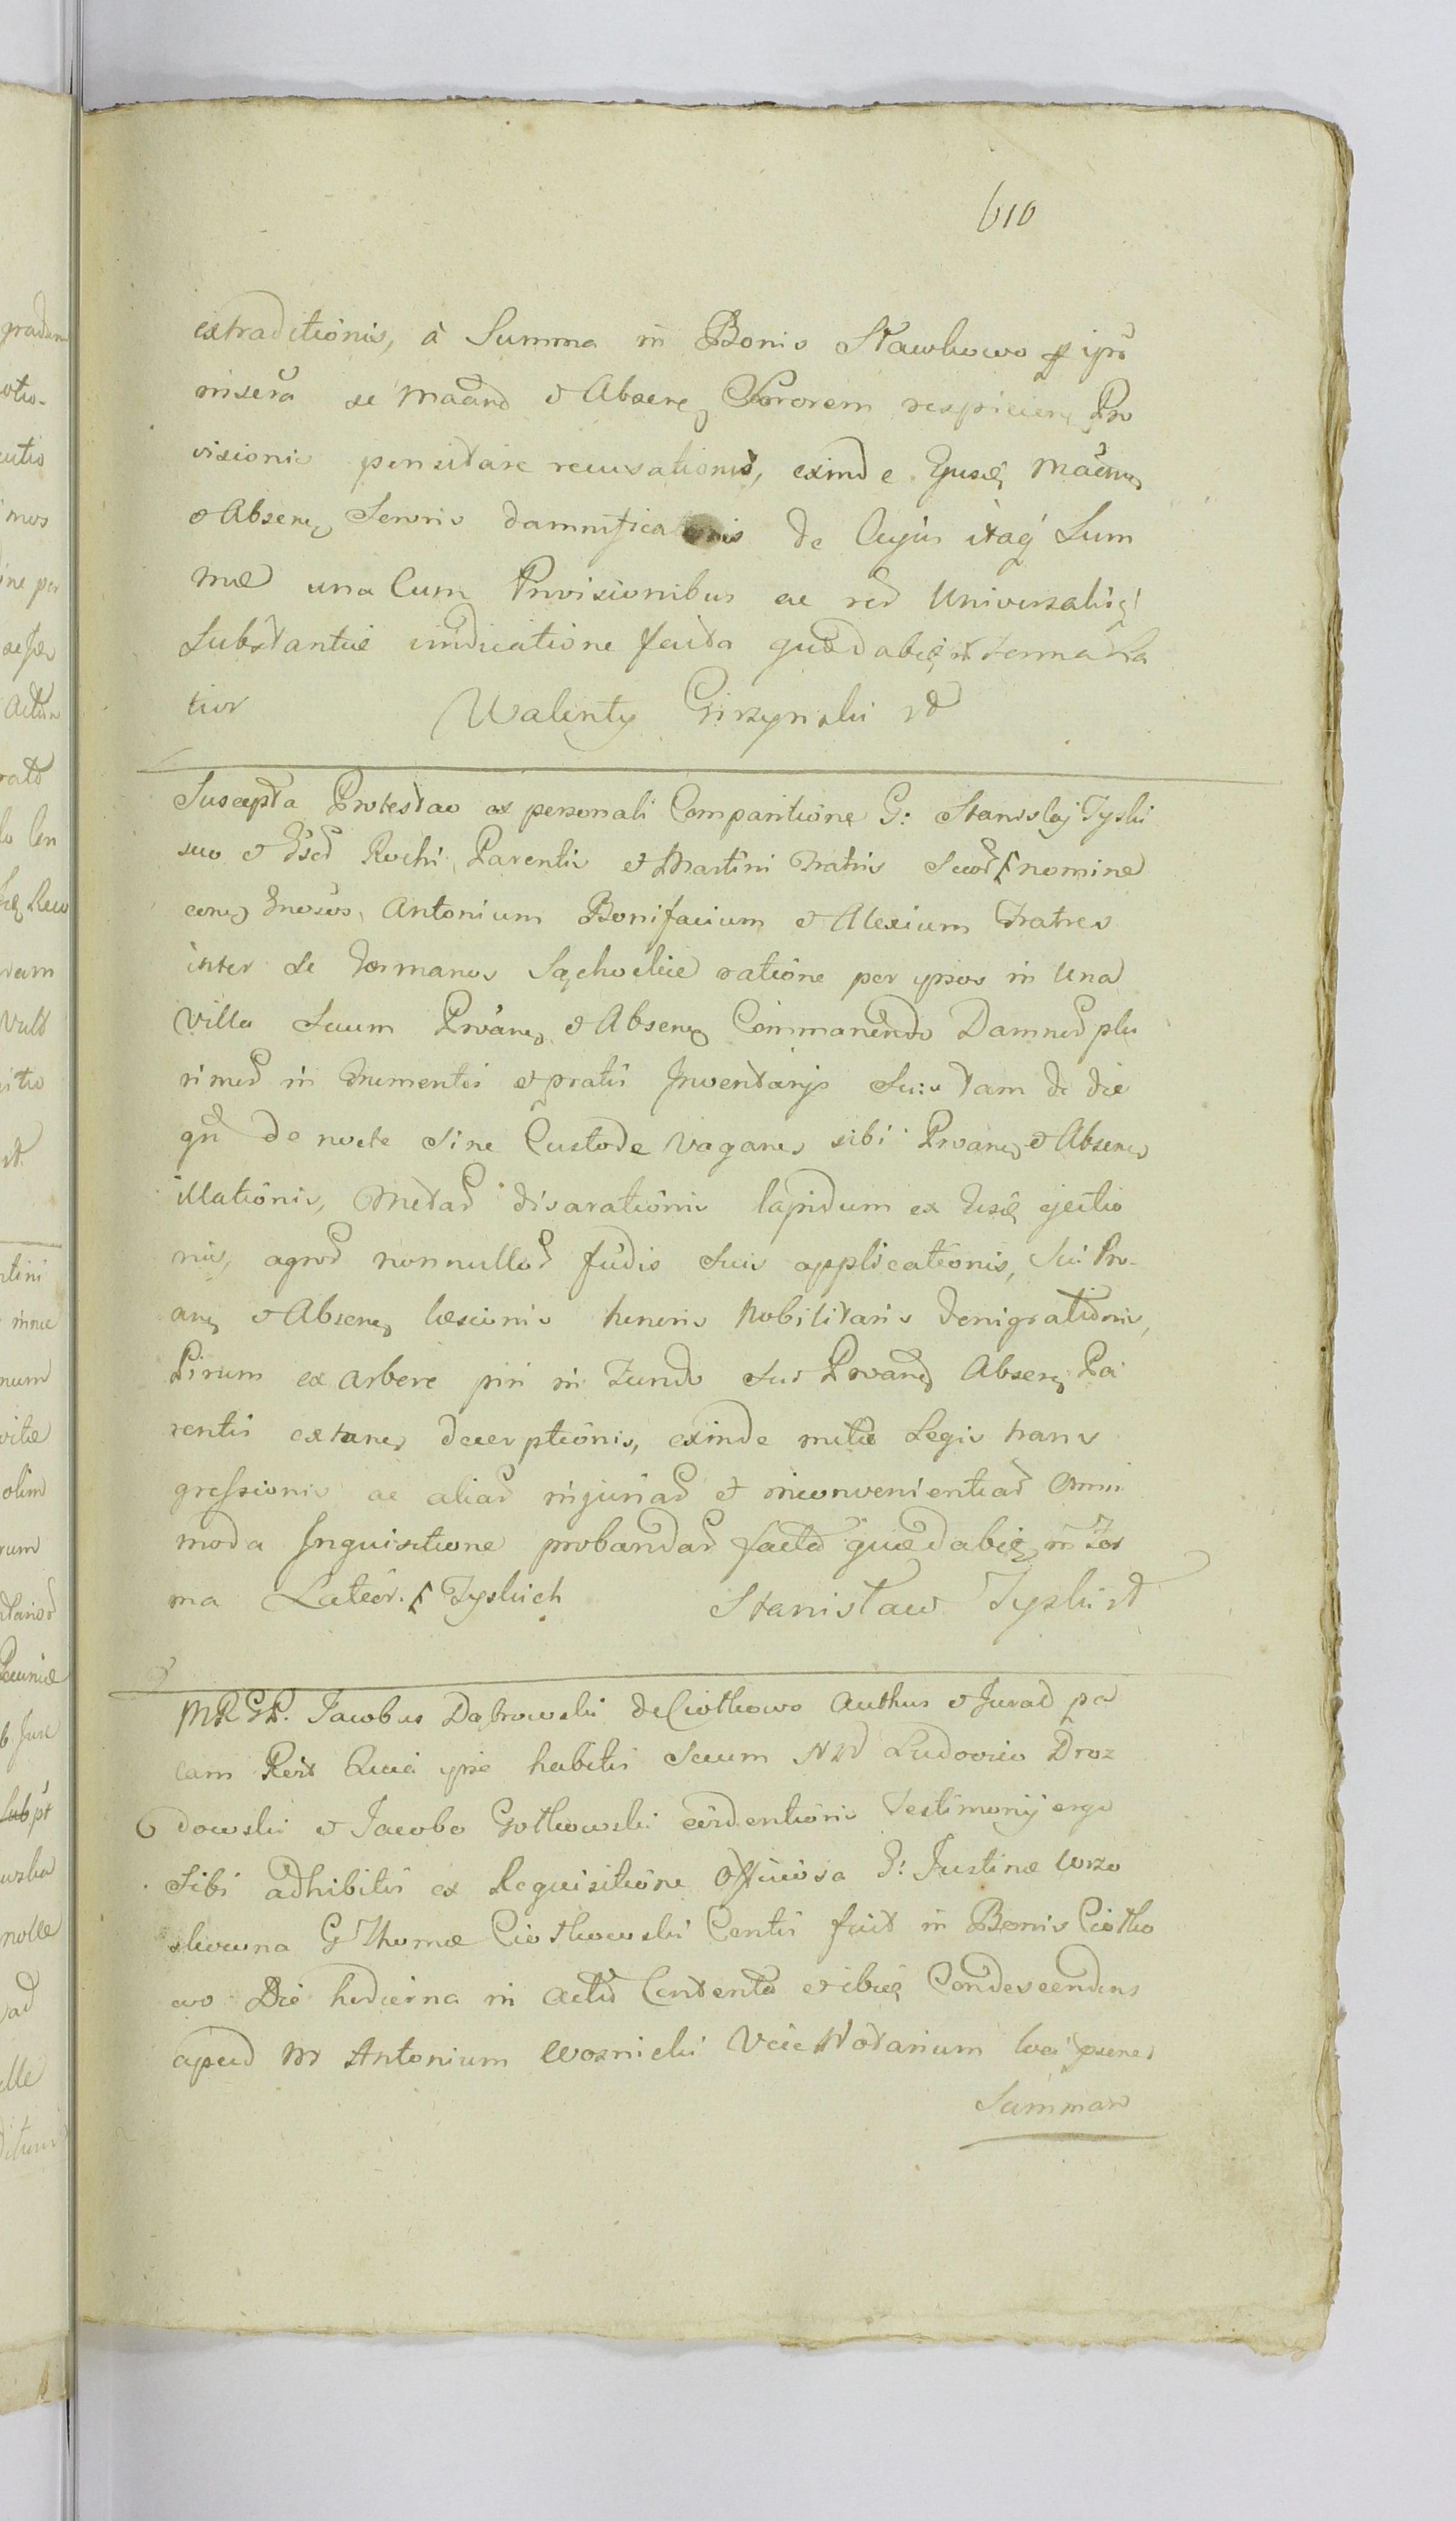 610
extraditionis, à Summa in Bonis Sławkowo p ipm
se Maand & Absen Sororem respicien Pro
visionis pensitare recusationis, exinde Ejusq
& Absen Sororis damnificationis de Cujus itaq Sum
mæ una Cum Provisionibus ac rer Universaliq
Substantiæ vindicatione facta quædabiq in Forma La
tior Walenty Girzynski
Suscepta Protestao ex personali Comparitione G: Stanislaj Tyski
suo & Rochi Parentis & Martini Fratris Suor nomine
conq Antonium Bonifacium & Alexium Fratres
inter se Germanos Sąchockie ratione per ipsos in Una
Villa Secum & Absen Commanendo Damnor plu
rimor in Frumentis & pratis Inventarijs Suis tam de die
qm de nocte sine Custode vagan sibi & Absen
illationis, Metar disarationis lapidum ex ejectio
nis, agror nonnullor fudis suis applicationis, Sui Pro-
anq & Absen læsionis honoris Nobilitaris denigrationis,
Pirum ex arbore piri in Fundo Absen Pa
rentis extan decerptionis, exinde Legis trans
gressionis ac aliar injuriar et inconvenientiar Omni
moda Inquisitione probandar facta quædabiq in For
ma Lateor. Tyskich Stanisław Tyski
MRGR. Jacobus Dąbrowski de Ciotkowo Authus & Jurad pa
lam Rert Quia ipse habitis Secum NN Ludovico Droz
dowski & Jacobo Gotkowski evidentioris Testimonij ergo
Sibi adhibitis ex Requisitione Officiosa G: Justinæ Wrzo
skowna G Thomæ Ciotkowski fuit in Bonis Ciotko
wo Die hodierna in actu Contento & ibiq Condescendens
apud Antonium Woznicki Vice Notarium loci
Summar